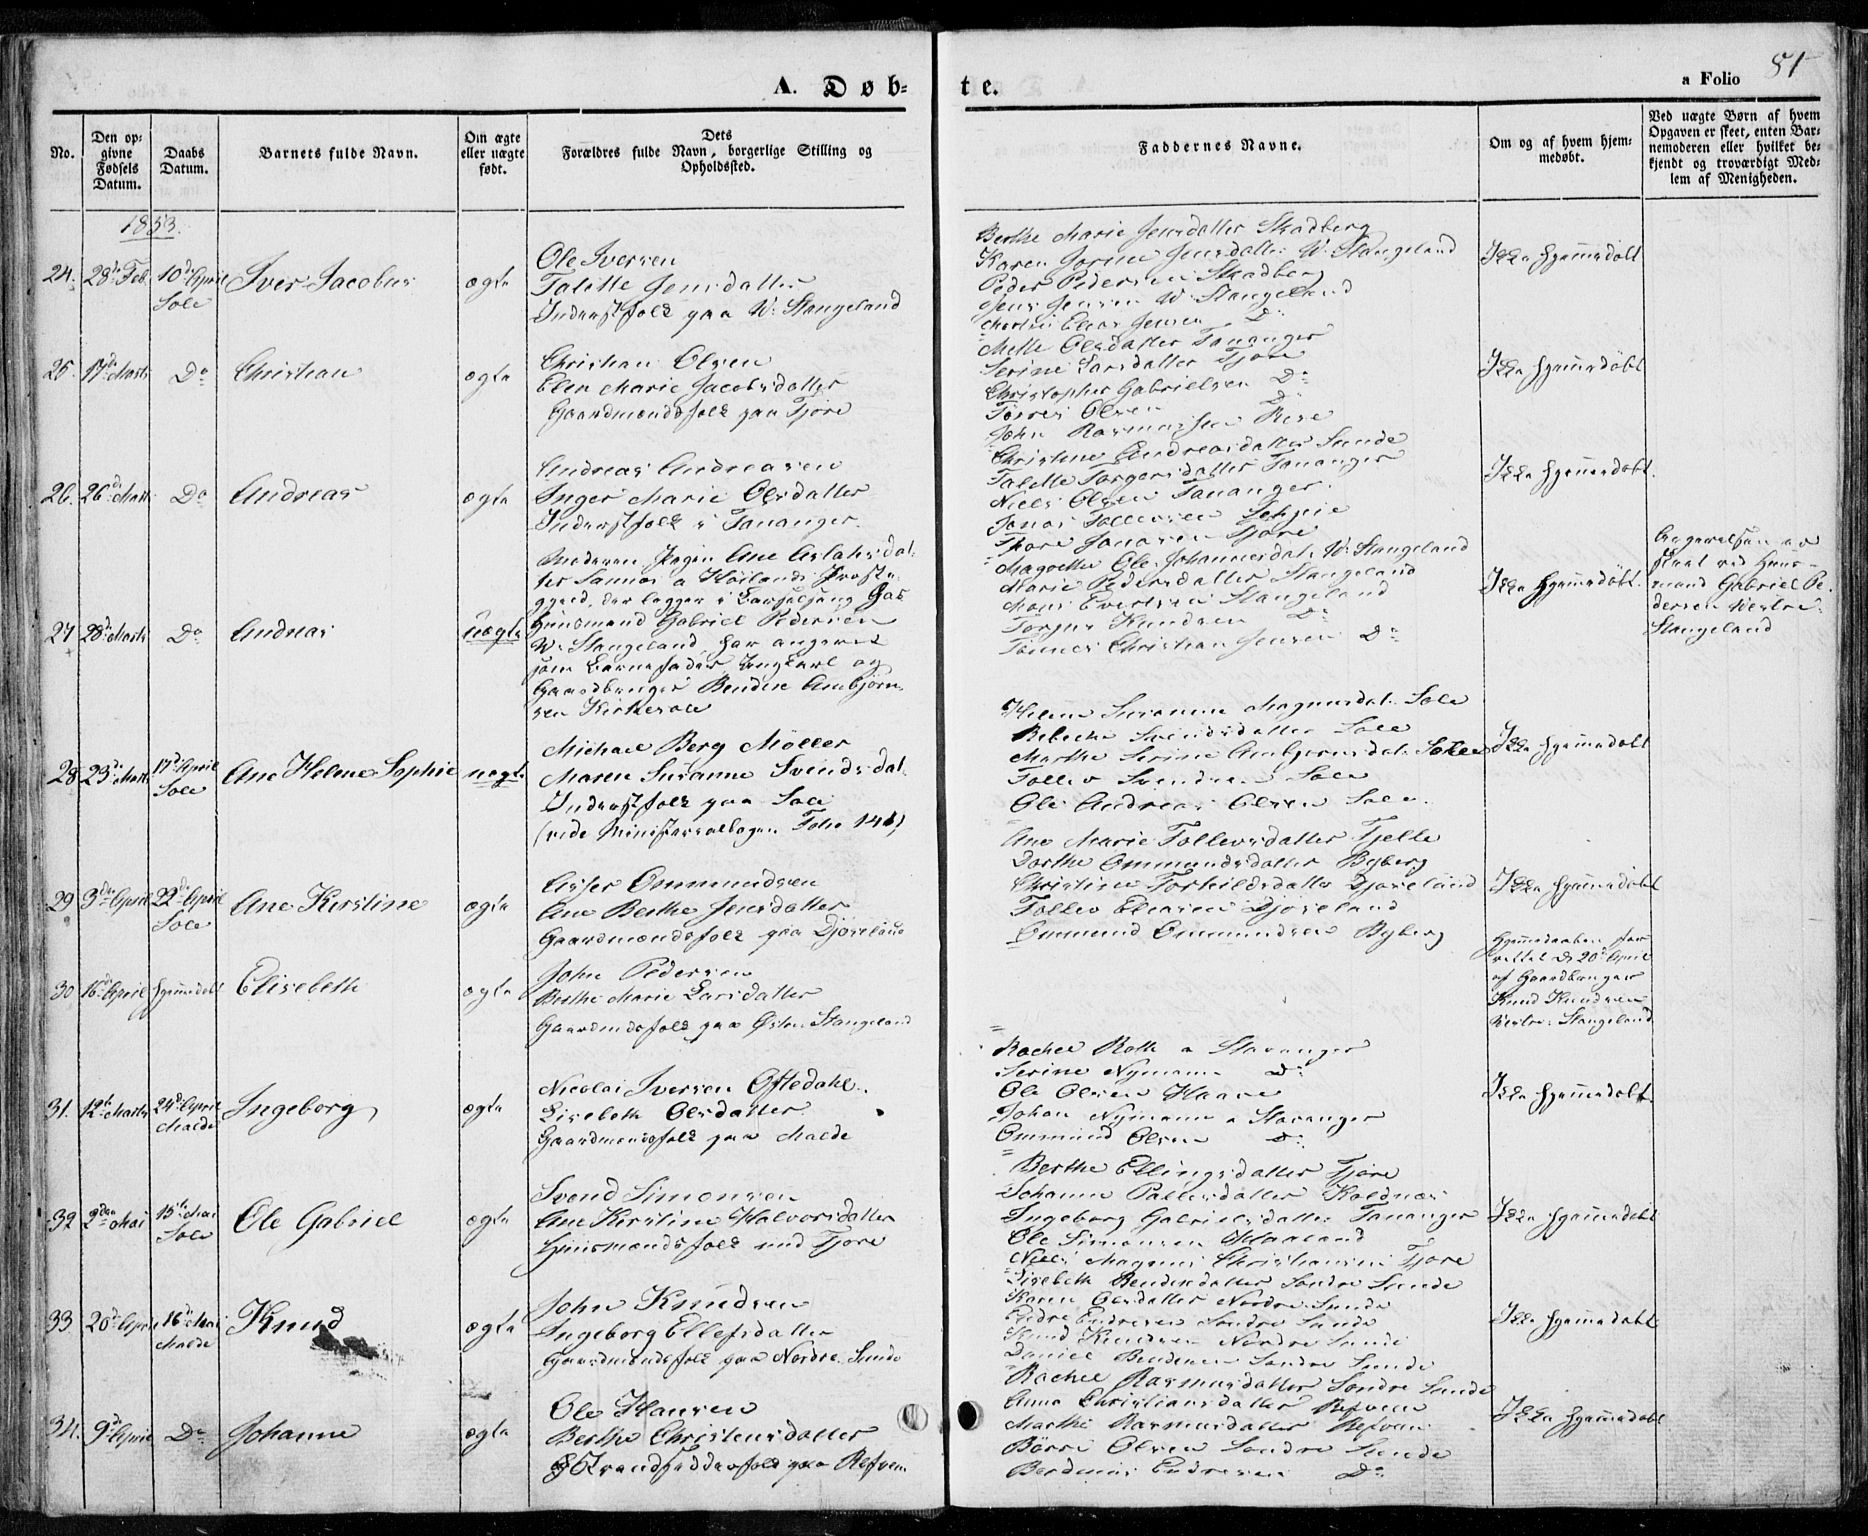 A. Døb-
te.
a Folio 51
No.
Den op-
givne
Fødsels
Datum.
Daabs
Datum.
Barnets fulde Navn.
Om ægte
eller uægte
født.
Dets
Forældres fulde Navn, borgerlige Stilling og
Opholdssted.
Faddernes Navne.
Om og af hvem hjem-
medøbt.
Ved uægte Børn af hvem
Opgaven er skeet, enten Bar-
nemoderen eller hvilket be-
kjendt og troværdigt Med-
lem af Menigheden.
1853.
24. 28de Feb. 10de April
Sole
Iver Jacobus
ægte
Ole Iversen
Talette Jensdatter
Inderstfolk paa W. Stangeland
Berthe Marie Jensdatter Skadberg
Karen Gorine Jensdatter W. Stangeland
Peder Pedersen Skadberg
Jens Jensen W. Stangeland
Elias Jensen Do
Ikke hjemmedøbt
25. 17de Marts Do
Christian
ægte
Christian Olsen
Elen Marie Jacobsdatter
Gaardmandsfolk paa Tjore
Mette Olsdatter Tananger
Serine Larsdatter Tjore
Christopher Gabrielsen Do
Tørres Olsen Do
John Rasmussen Rise
Ikke hjemmedøbt
26. 26de Marts Do
Andreas
ægte
Andreas Andreasen
Inger Marie Olsdatter
Inderstfolk i Tananger.
Christine Andreasdatter Sunde
Talette Torgersdatter Tananger
Niels Olsen Tananger.
Jonas Tollevsen
Thore Jonasen Tjore
Ikke hjemmedøbt.
27 28de Marts Do
Andreas
Uægte
Moderen Pigen Ane Aslaksdat-
ter Sannes a Höilands Præste-
gjeld, der ligger i Barselseng hos
Huusmand Gabriel Pedersen
W. Stangeland, har angivet
som Barnefader Ungkarl og
Gaardbruger Bendix Anbjørn-
sen Kirkesole
Magrethe Ole Johannesdat. W. Stangeland
Marie Pedersdatter Stangeland
Mons Evertsen Stangeland
Torger Knudsen Do
Tønnes Christian Jensen Do
Ikke hjemmedøbt.
Angivelsen er
skeet ved Huus-
mand Gabriel Pe-
dersen Westre
Stangeland
28 23de Marts 17de April
Sole
Ane Helene Sophie
uægte
Michael Berg Møller
Maren Susanne Svendsdat.
Inderstfolk paa Sole
(vide Ministerialbogen Folio 141)
Helene Susanne Magnusdat. Sole
Rebecke Svendsdatter Sole
Marthe Serine Anbjørnsdat. Sole
Tollev Svendsen Sole
Ole Andreas Olsen Sole.
Ikke hjemmedøbt
29 3die April 22de April
Sole
Ane Kirstine
ægte
Asser Ommundsen
Ane Berthe Jensdatter
Gaardmandsfolk paa Djoseland
Ane Marie Tollevsdatter Tjelle
Dorthe Ommundsdatter Byberg
Christine Torkildsdatter Djoseland
Tollev Eliasen Djoseland
Ommund Ommundsen Byberg
Ikke hjemmedøbt
30 16de April hjemmedøbt
Elisebeth
ægte
John Pedersen
Berthe Marie Larsdatter
Gaardmdsfolk paa Østre Stangeland
Hjemmedaaben for-
rettet d. 20de April
af Gaardbruger
Knud Knudsen
Westre Stangeland
31. 12te Marts 24de April
Malde
Ingeborg
ægte
Nicolai Iversen Oftedahl.
Lisebeth Olsdatter
Gaardmandsfolk paa Malde
Rachel Roth a Stavanger
Serine Nymann Do
Ole Olsen Haave
Johan Nymann a Stavanger
Ommund Olsen Do
Ikke hjemmedøbt.
32 2den Mai 15de Mai
Sole
Ole Gabriel
ægte
Svend Simonsen
Ane Kirstine Halvorsdatter
Huusmandsfolk und. Tjore
Berthe Ellingsdatter Tjore
Johanne Pallesdatter Koldnæs
Ingeborg Gabrielsdatter Tananger
Ole Simonsen
Niels Magnus Christiansen Tjore
Ikke hjemmedøbt
33 20de April 16de Mai
Malde
Knud
ægte
John Knudsen
Ingeborg Ellefsdatter
Gaardmandsfolk paa Nordre Sunde
Lisebeth Bendixdatter Søndre Sunde
Karen Olsdatter Nordre Sunde
Endre Endresen Søndre Sunde
Knud Knudsen Nordre Sunde
Daniel Bendixen Søndre Sunde
Ikke hjemmedøbt
34. 9de April Do
Johanne
ægte
Ole Hansen
Berthe Christensdatter
Strandsidderfolk paa Refven
Rachel Rasmusdatter Søndre Sunde
Anna Christiansdatter Refven
Marthe Rasmusdatter Refven
Børre Olsen Søndre Sunde
Berdines Endresen Do
Ikke hjemmedøbt